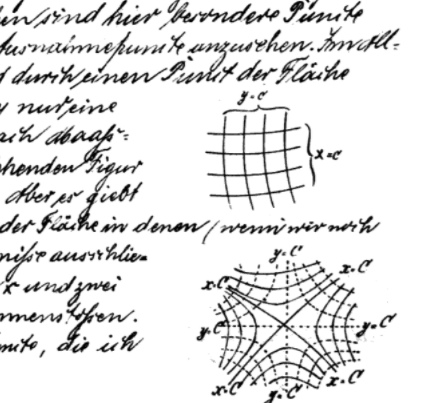 sind hier besondere Punkte
Ausnahmepunkte anzusehen. Im All-
durch einen Punkt der Fläche
nur eine
y = C
x = C
henden Figur
Aber es giebt
der Fläche in denen (wenn wir noch
y = C
nisse ausschlie-
x = C
x = C
x und zwei
mmenstoßen.
y = C
y = C
die ich
x = C
y = C
x = C